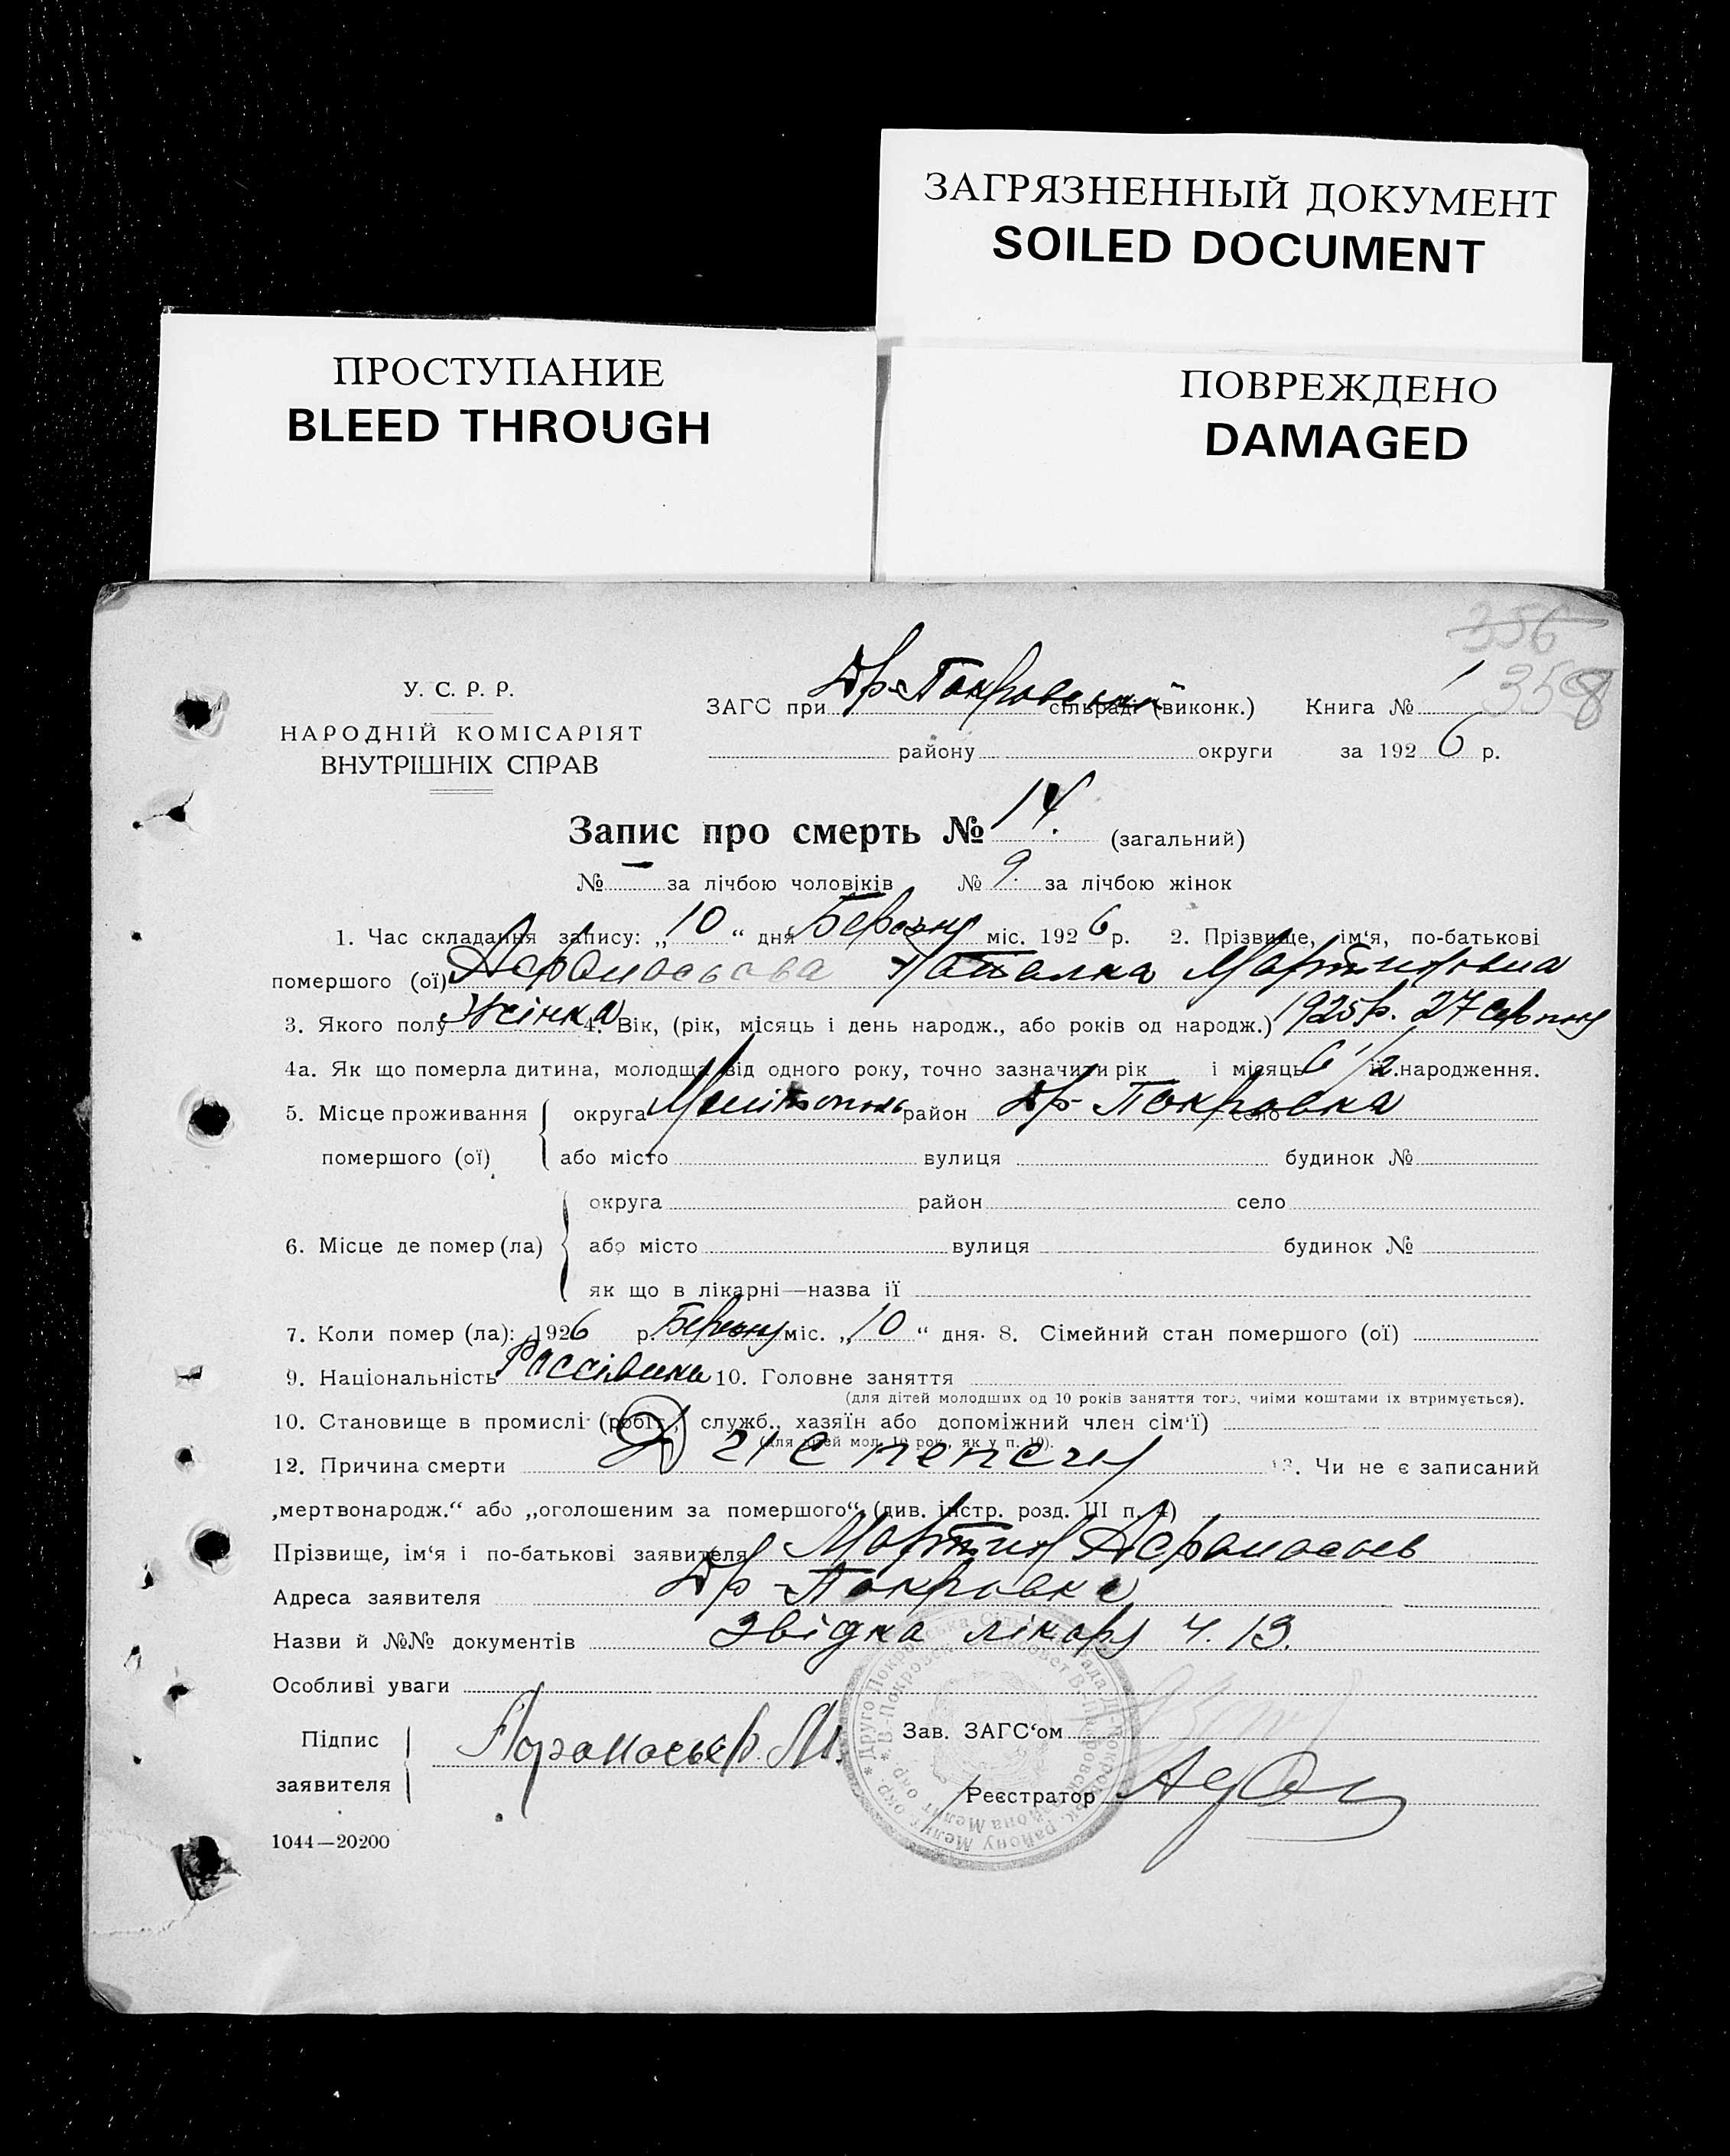 ЗАГРЯЗНЕННЫЙ ДОКУМЕНТ
SOILED DOCUMENT
ПРОСТУПАНИЕ
BLEED THROUGH
ПОВРЕЖДЕНО
DAMAGED
356
358
У. С. Р. Р.
НАРОДНІЙ КОМІСАРІЯТ
ВНУТРІШНІХ СПРАВ
ЗАГС при Др-Покровській сільраді (виконк.) Книга № 1
району округи за 1926 р.
Запис про смерть № 14. (загальний)
№ — за лічбою чоловіків № 9. за лічбою жінок
1. Час складання запису: „10“ дня Березня міс. 1926 р. 2. Прізвище, ім‘я, по-батькові
помершого (ої) Афанасьєва Наталка Мартиновна
3. Якого полу Жінка 4. Вік, (рік, місяць і день народж., або років од народж.) 1925 р. 27 серпня
4а. Як що померла дитина, молодща від одного року, точно зазначити рік і місяць 6 1/2 її народження.
5. Місце проживання округа Мелітополь район Др-Покровка село
помершого (ої) або місто вулиця будинок №
округа район село
6. Місце де помер (ла) або місто вулиця будинок №
як що в лікарні—назва її
7. Коли помер (ла): 1926 р. Березня міс. „10“ дня. 8. Сімейний стан помершого (ої)
9. Національність 10. Головне заняття
(для дітей молодших од 10 років заняття того, чиїми коштами їх втримується).
10. Становище в промислі (робіт., служб., хазяїн або допоміжний член сім‘ї)
(для дітей мол. 10 рок., як у п. 10).
12. Причина смерти 13. Чи не є записаний
„мертвонародж.“ або „оголошеним за помершого“ (див. інстр. розд. III п. 4)
Прізвище, ім‘я і по-батькові заявителя Мартин Афанасьєв
Адреса заявителя Др-Покровка
Назви й №№ документів Звідка лікаря ч. 13.
Особливі уваги
Підпис
заявителя Афанасьев. М.
Зав. ЗАГС‘ом
Реєстратор
1044—20200